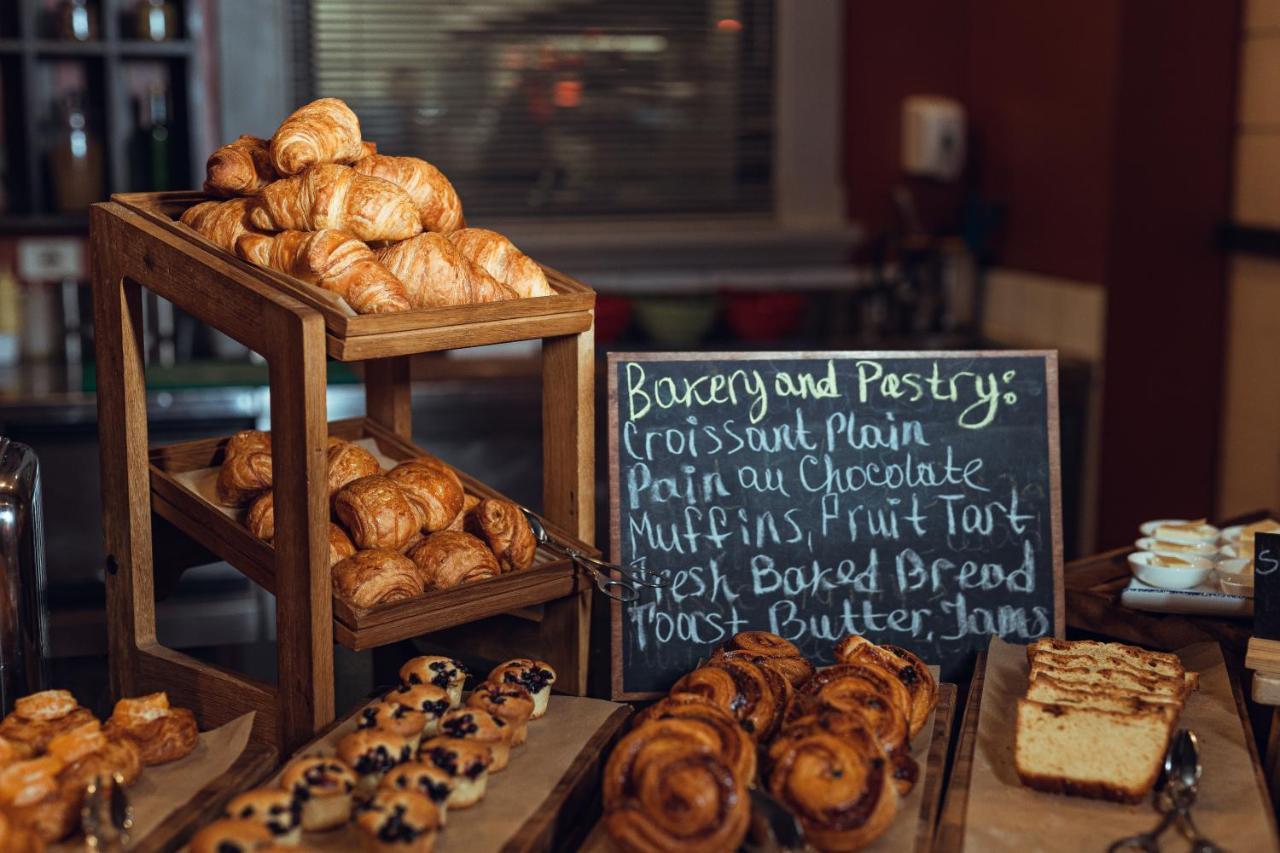 Bakery and Pastry:
Croissant Plain
Pain au Chocolate
Muffins, Fruit Tart
Fresh Baked Bread
Toast Butter, Jams
S